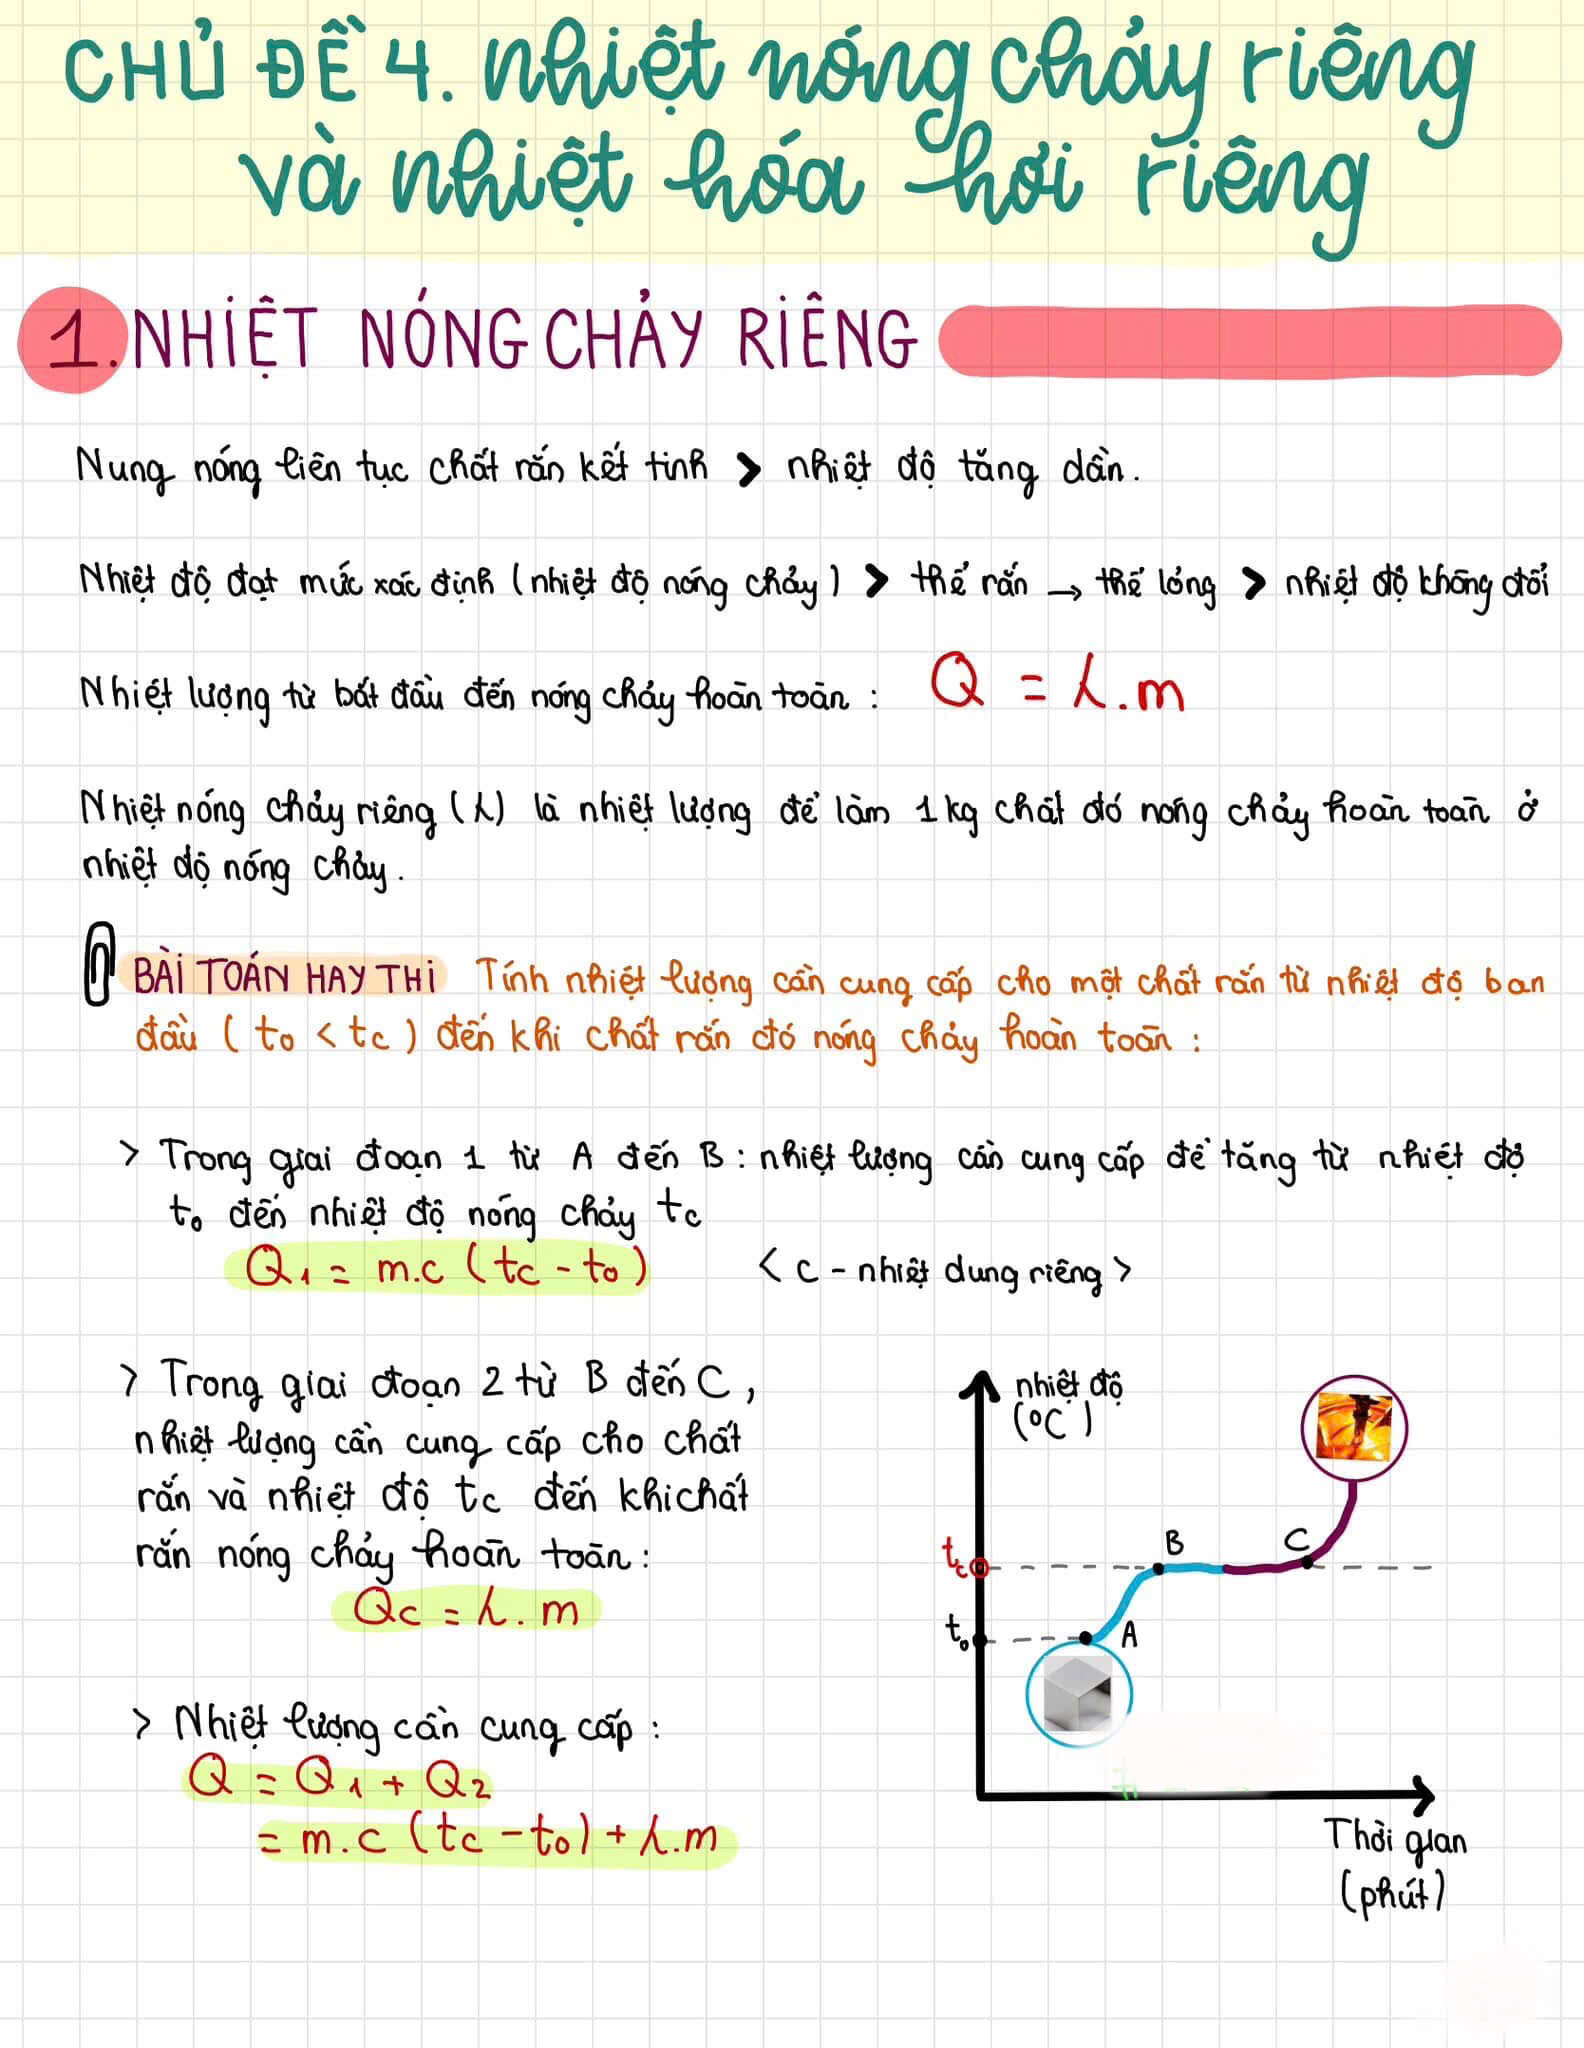 CHỦ ĐỀ 4. nhiệt nóng chảy riêng
và nhiệt hóa hơi riêng
1. NHIỆT NÓNG CHẢY RIÊNG
Nung nóng liên tục chất rắn kết tinh > nhiệt độ tăng dần.
Nhiệt độ đạt mức xác định (nhiệt độ nóng chảy) > thể rắn → thể lỏng > nhiệt độ không đổi
Nhiệt lượng từ bắt đầu đến nóng chảy hoàn toàn : Q = λ.m
Nhiệt nóng chảy riêng (λ) là nhiệt lượng để làm 1kg chất đó nóng chảy hoàn toàn ở
nhiệt độ nóng chảy.
BÀI TOÁN HAY THI Tính nhiệt lượng cần cung cấp cho một chất rắn từ nhiệt độ ban
đầu (t₀ < tc) đến khi chất rắn đó nóng chảy hoàn toàn :
> Trong giai đoạn 1 từ A đến B : nhiệt lượng cần cung cấp để tăng từ nhiệt độ
t₀ đến nhiệt độ nóng chảy tc
Q₁ = m.c (tc - t₀) < c - nhiệt dung riêng >
> Trong giai đoạn 2 từ B đến C,
nhiệt lượng cần cung cấp cho chất
rắn và nhiệt độ tc đến khi chất
rắn nóng chảy hoàn toàn :
Qc = λ.m
> Nhiệt lượng cần cung cấp :
Q = Q₁ + Q₂
= m.c (tc - t₀) + λ.m
nhiệt độ
(°C)
B
C
tc
t₀
A
Thời gian
(phút)